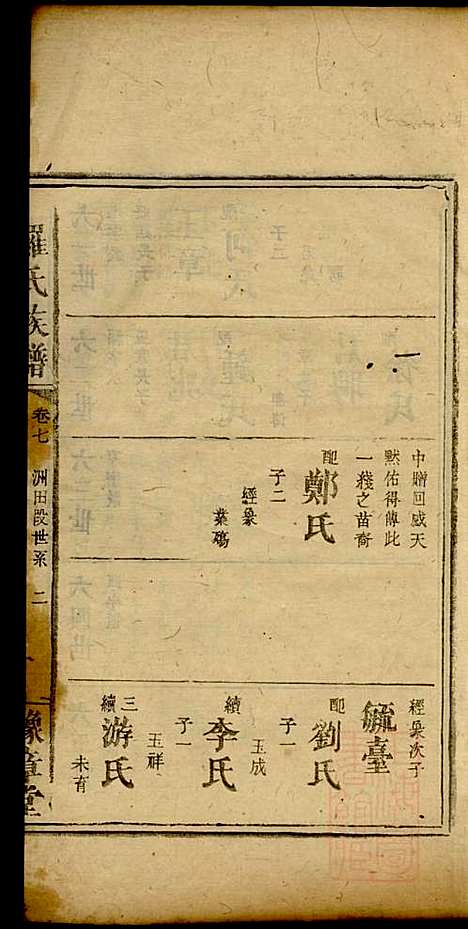 中贈回感天
黙佑得傳此
一綫之苗裔
配鄭氏
子二
經衆
業鴻
經衆次子
毓臺
配劉氏
子一
玉成
續李氏
子一
玉祥
三續游氏
未育
羅氏族譜
卷七
洲田段世系
二
豫章堂